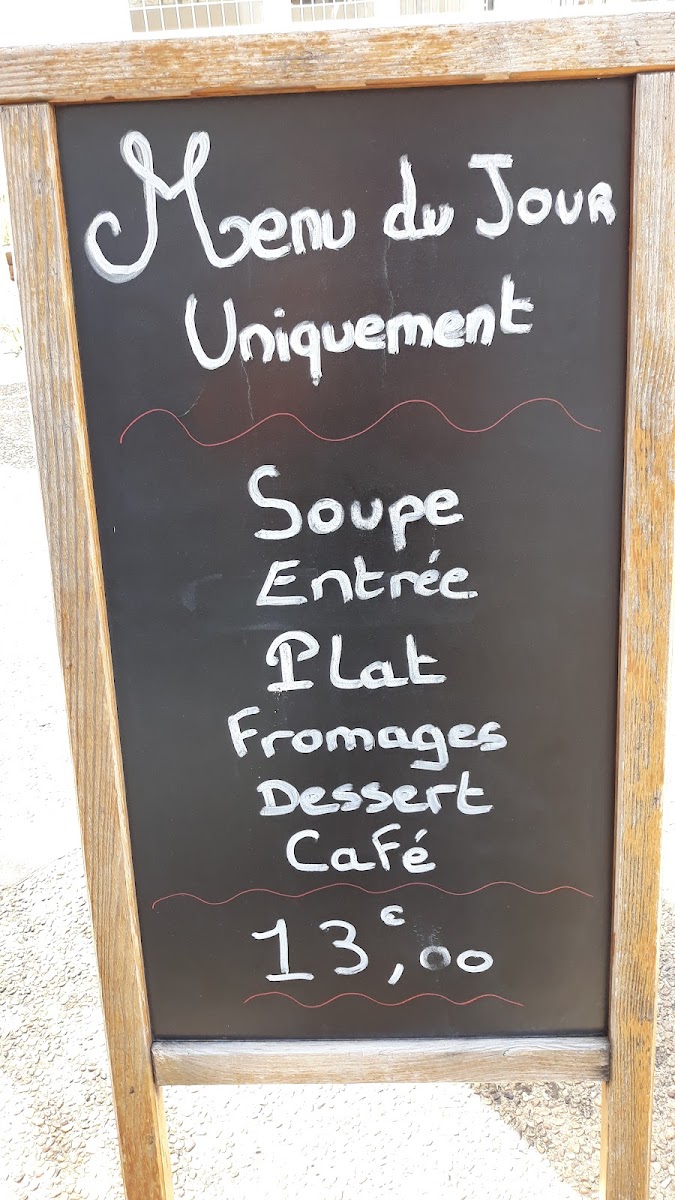 Menu du Jour
Uniquement
Soupe
Entrée
Plat
Fromages
Dessert
Café
13€,00